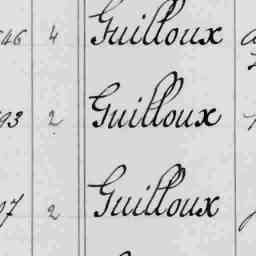 46 4 Guilloux
93 2 Guilloux
07 2 Guilloux